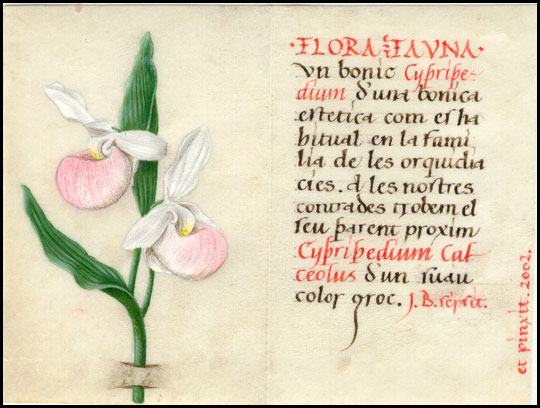 ·FLORA ET FAVNA·
Vn bonic Cypripe-
dium d'una bonica
estetica com es ha
bitual en la fami
lia de les orquidia
cies. A les nostres
contrades trobem el
seu parent proxim
Cypripedium Cal
ceolus d'un suau
color groc. J.B.
et pinxit. 2002.